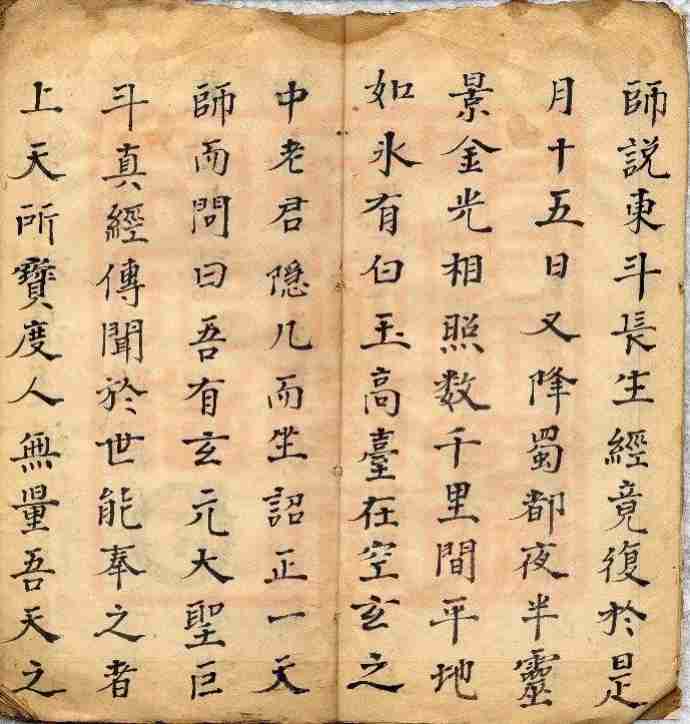 師説東斗長生經竟復於是
月十五日又降蜀都夜半靈
景金光相照数千里間平地
如氷有白玉高臺在空玄之
中老君隠几而坐詔正一天
師而問曰吾有玄元大聖巨
斗真經傳聞於世能奉之者
上天所寳度人無量吾天之